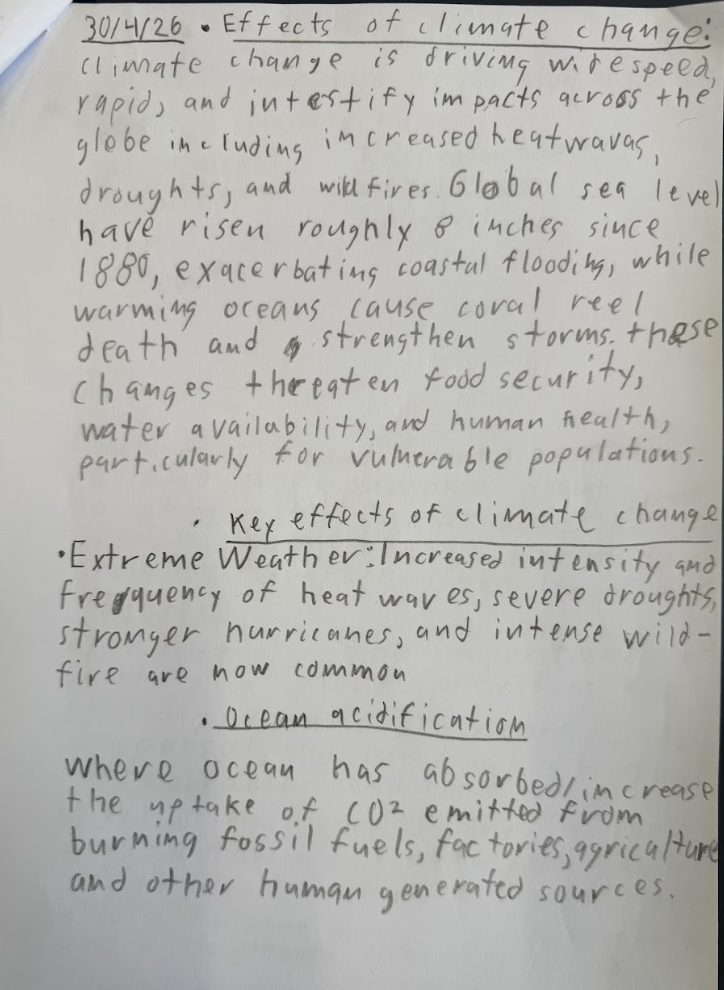 30/4/26 • Effects of climate change:
climate change is driving widespeed,
rapid, and intestify impacts across the
globe including increased heatwavas,
droughts, and wildfires. Global sea level
have risen roughly 8 inches since
1880, exacerbating coastal flooding, while
warming oceans cause coral reel
death and strengthen storms. these
changes threaten food security,
water availability, and human health,
particularly for vulnerable populations.
• Key effects of climate change
• Extreme Weather: Increased intensity and
frequency of heat waves, severe droughts,
stronger hurricanes, and intense wild-
fire are now common
• Ocean acidification
where ocean has absorbed/increase
the uptake of CO² emitted from
burning fossil fuels, factories, agriculture
and other human generated sources.